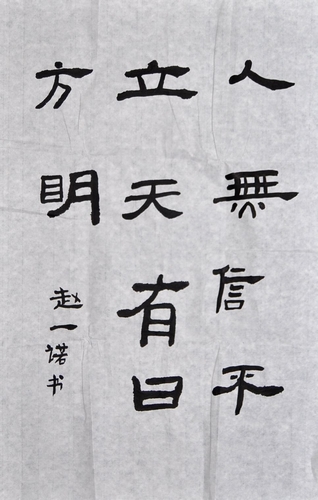 人無信不
立天有日
方明
赵一诺书